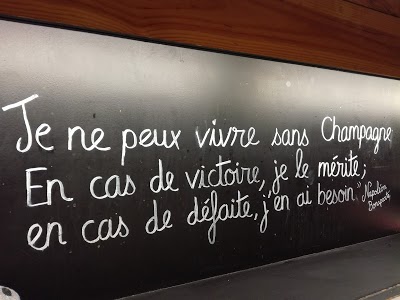 Je ne peux vivre sans Champagne
En cas de victoire, je le mérite;
en cas de défaite, j'en ai besoin." Napoléon
Bonaparte